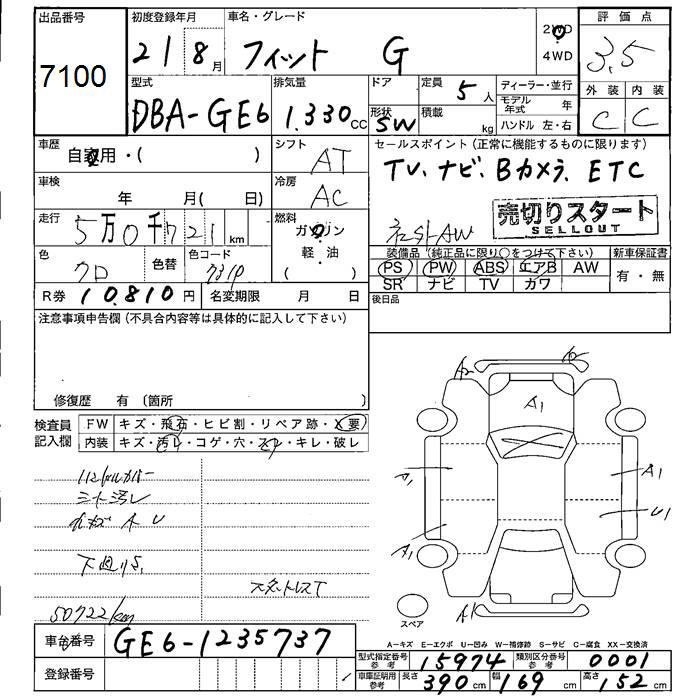 出品番号 初度登録年月 車名・グレード 2WD 4WD 評価点
7100 21 8月 フィット G 3.5
型式 排気量 ドア 定員 5人 ディーラー・並行 外装 内装
DBA-GE6 1.330cc 形状 SW 積載 kg モデル年式 年 C C
ハンドル 左・右
車歴 自家用・( ) シフト AT セールスポイント(正常に機能するものに限ります)
車検 年 月( 日) 冷房 AC TV、ナビ、Bカメラ、ETC
走行 5万0千721km 燃料 ガソリン・軽・油 ( ) 社外AW 売切りスタート
SELLOUT
色 クロ 色替 色コード 装備品(純正品に限り○をつけて下さい) 新車保証書
PS PW ABS エアB AW 有・無
R券 10,810円 名変期限 月 日 SR ナビ TV カワ
注意事項申告欄(不具合内容等は具体的に記入して下さい) 後日品
修復歴 有(箇所
検査員記入欄 FW キズ・飛石・ヒビ割・リペア跡・X要
内装 キズ・汚レ・コゲ・穴・スレ・キレ・破レ
A2
A1
A1
U1
A1
A1
スペア
50722km
車台番号 GE6-1235737
登録番号
A-キズ E-エクボ U-凹み W-補修跡 S-サビ C-腐食 XX-交換済
型式指定番号 参考 15974 類別区分番号 参考 0001
車庫証明用 参考 長さ 390cm 幅 169cm 高さ 152cm